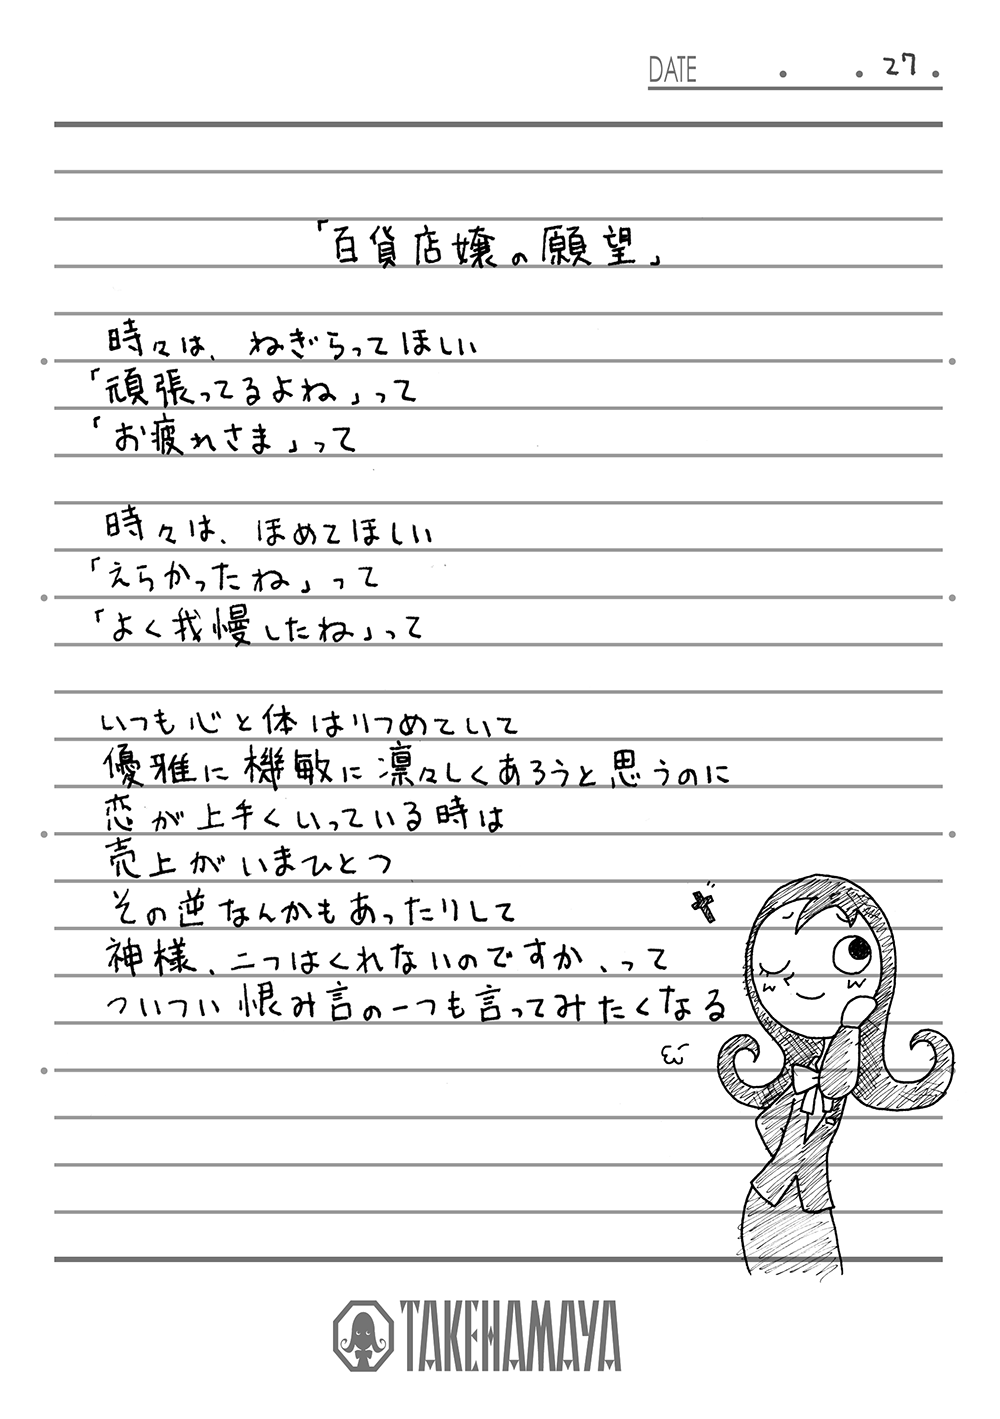 DATE . . 27.
「百貨店嬢の願望」
時々は、ねぎらってほしい
「頑張ってるよね」って
「お疲れさま」って
時々は、ほめてほしい
「えらかったね」って
「よく我慢したね」って
いつも心と体はりつめていて
優雅に機敏に凛々しくあろうと思うのに
恋が上手くいっている時は
売上がいまひとつ
その逆なんかもあったりして
神様、二つはくれないのですか、って
ついつい恨み言の一つも言ってみたくなる
TAKEHAMAYA